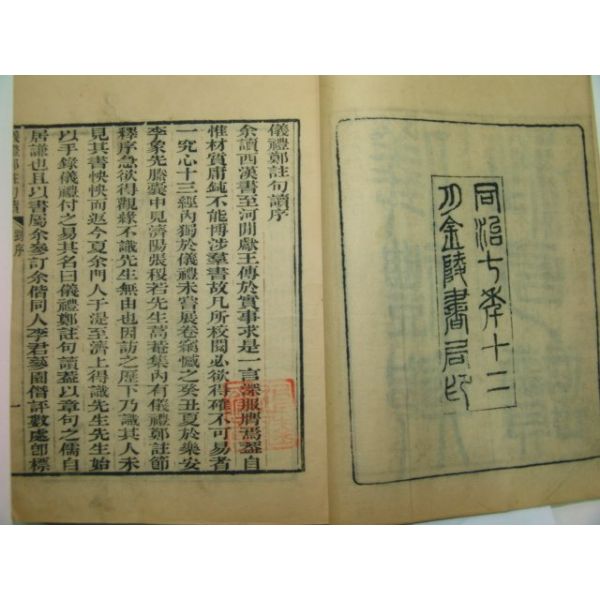 同治七年十二
月金陵書局印
儀禮鄭註句讀序
余讀西漢書至河間獻王傳於實事求是一言深服膺焉蓋自
惟材質庸鈍不能博涉羣書故凡所校閱必欲得確不可易者
一究心十三經內獨於儀禮未嘗展卷竊憾之癸丑夏於樂安
李象先騰囊中見濟陽張稷若先生蒿菴集內有儀禮鄭註節
釋序急欲得觀緣不識先生無由也因訪之歷下乃識其人未
見其書怏怏而返今夏余門人于湜至濟上得識先生先生始
以手錄儀禮付之易其名曰儀禮鄭註句讀蓋以章句之儒自
居謙也且以書屬余參訂余偕同人李君蓼園僭評數處卽標
儀禮鄭註句讀
序
一